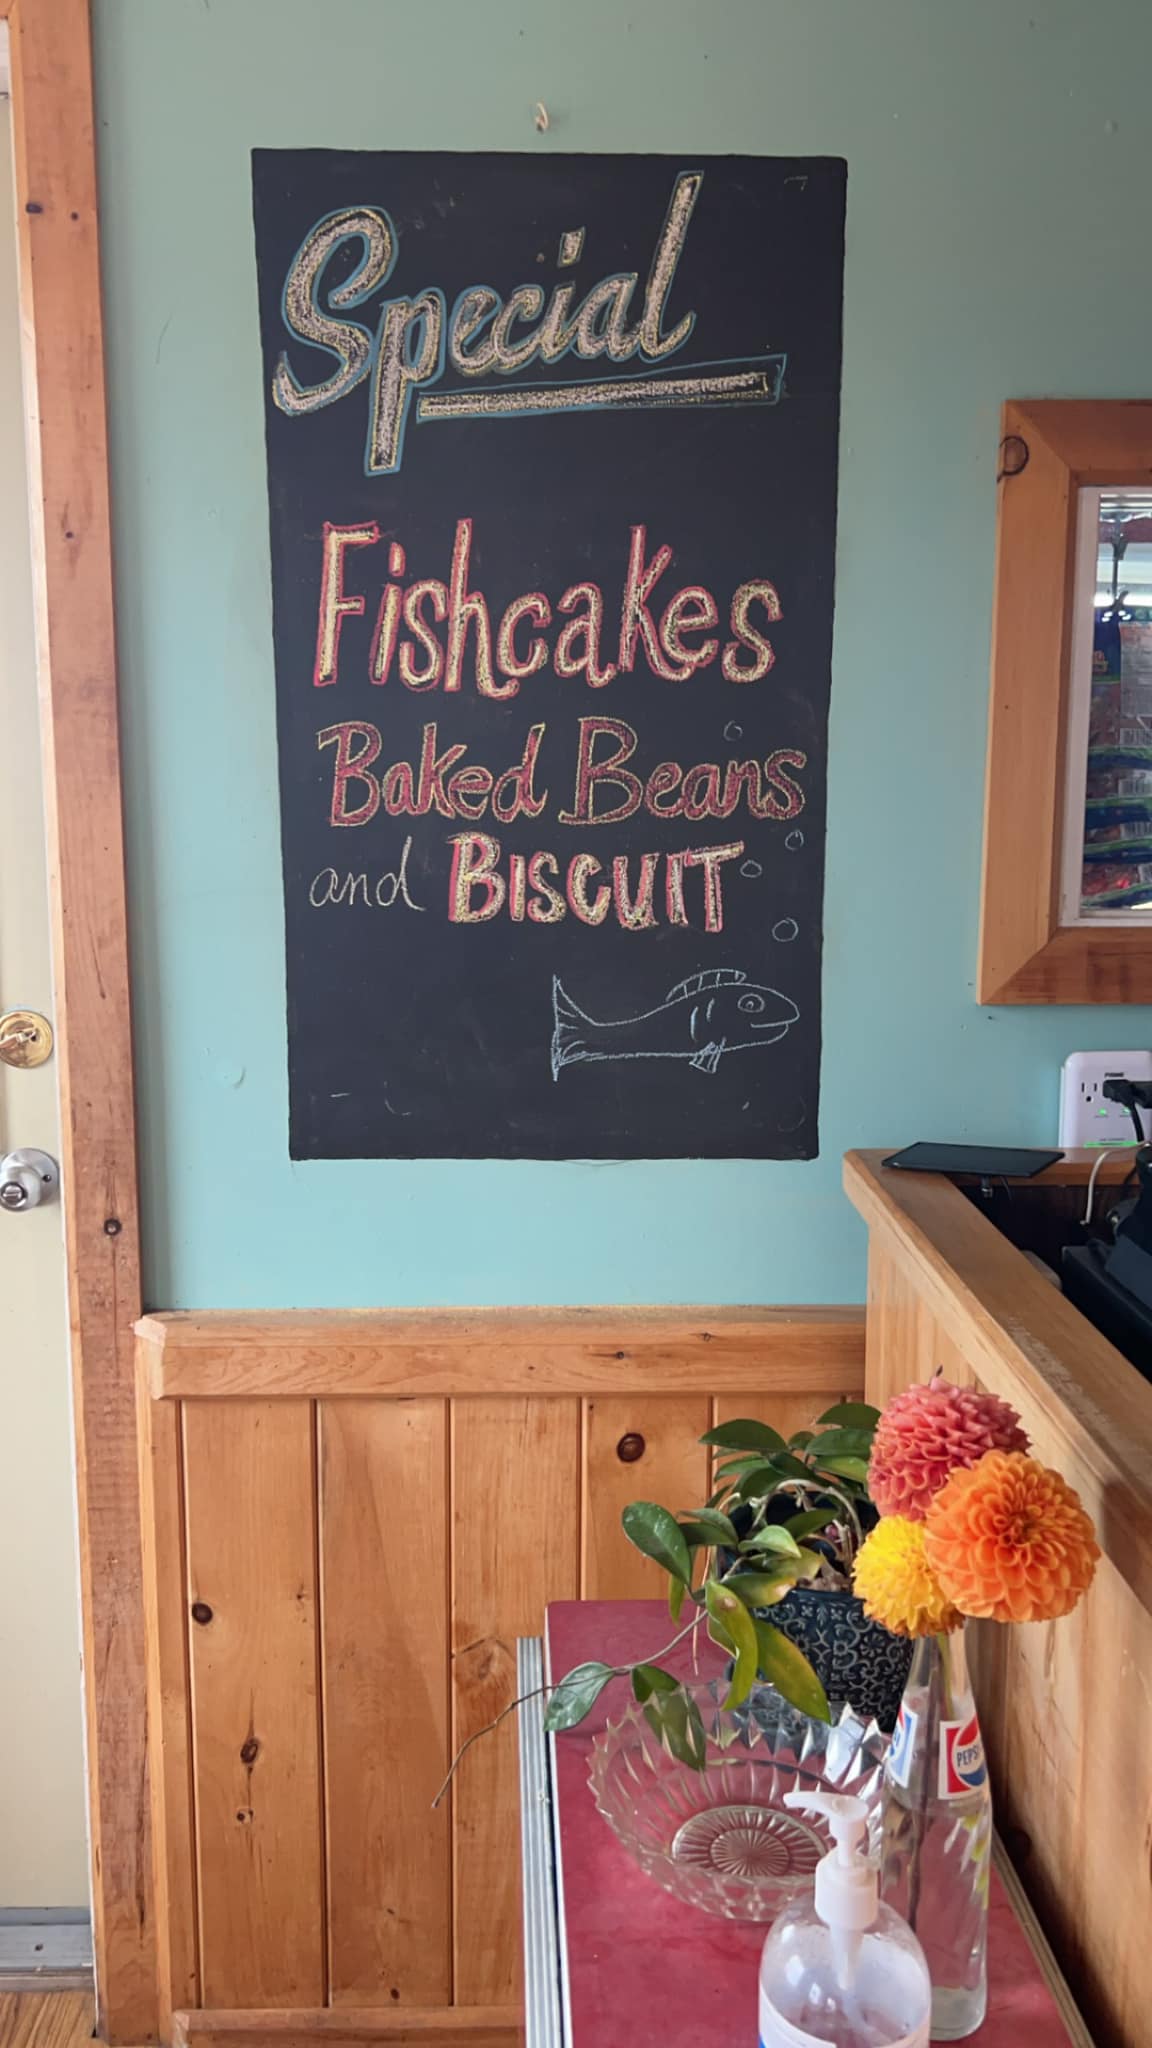 Special
Fishcakes
Baked Beans
and BISCUIT
PEPSI